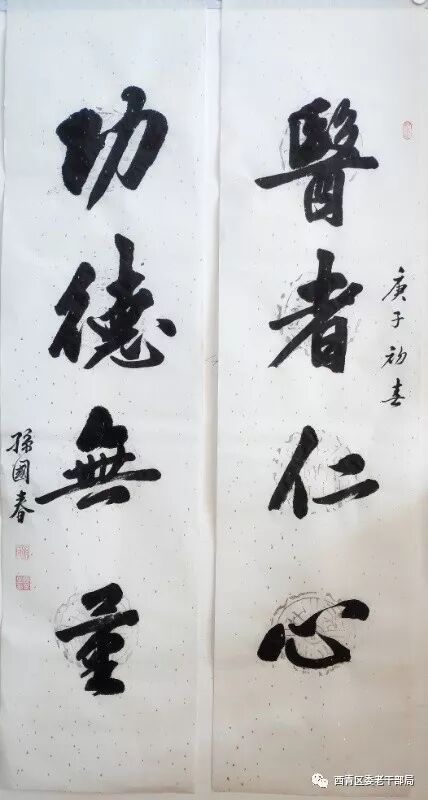 醫者仁心
庚子初春
功德無量
孫國春
西青区委老干部局